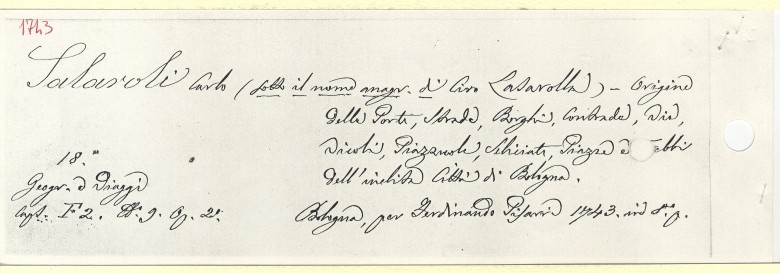 1743
Salaroli Carlo (sotto il nome anagr. di Ciro Lasarolla) – Origine
delle Porte, Strade, Borghi, Contrade, Vie,
Vicoli, Piazzuole, Seliciate, Piazze e
dell'inclita Città di Bologna.
18.
Geogr. e Viaggi
Capt. F 2. N.º 9. Op. 2ª
Bologna, per Ferdinando Pisarri 1743. in 8.º p.